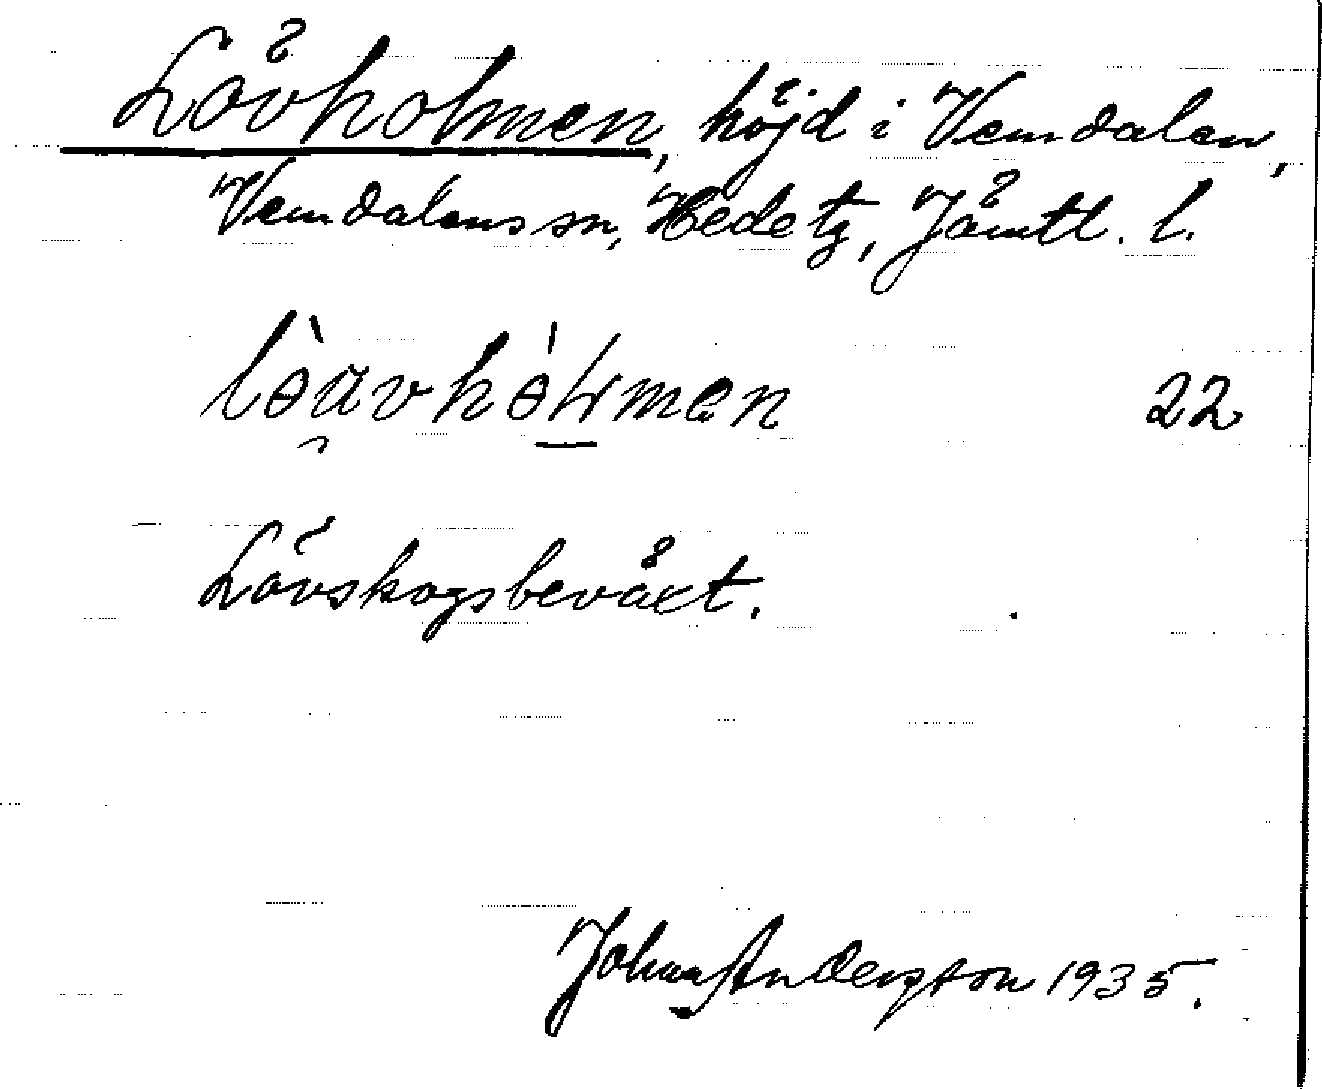 Lövholmen, höjd i Vemdalen,
Vemdalens sn, Hede tg, Jämtl. l.
22
Lövskogsbeväxt.
Johan Anderson 1935.